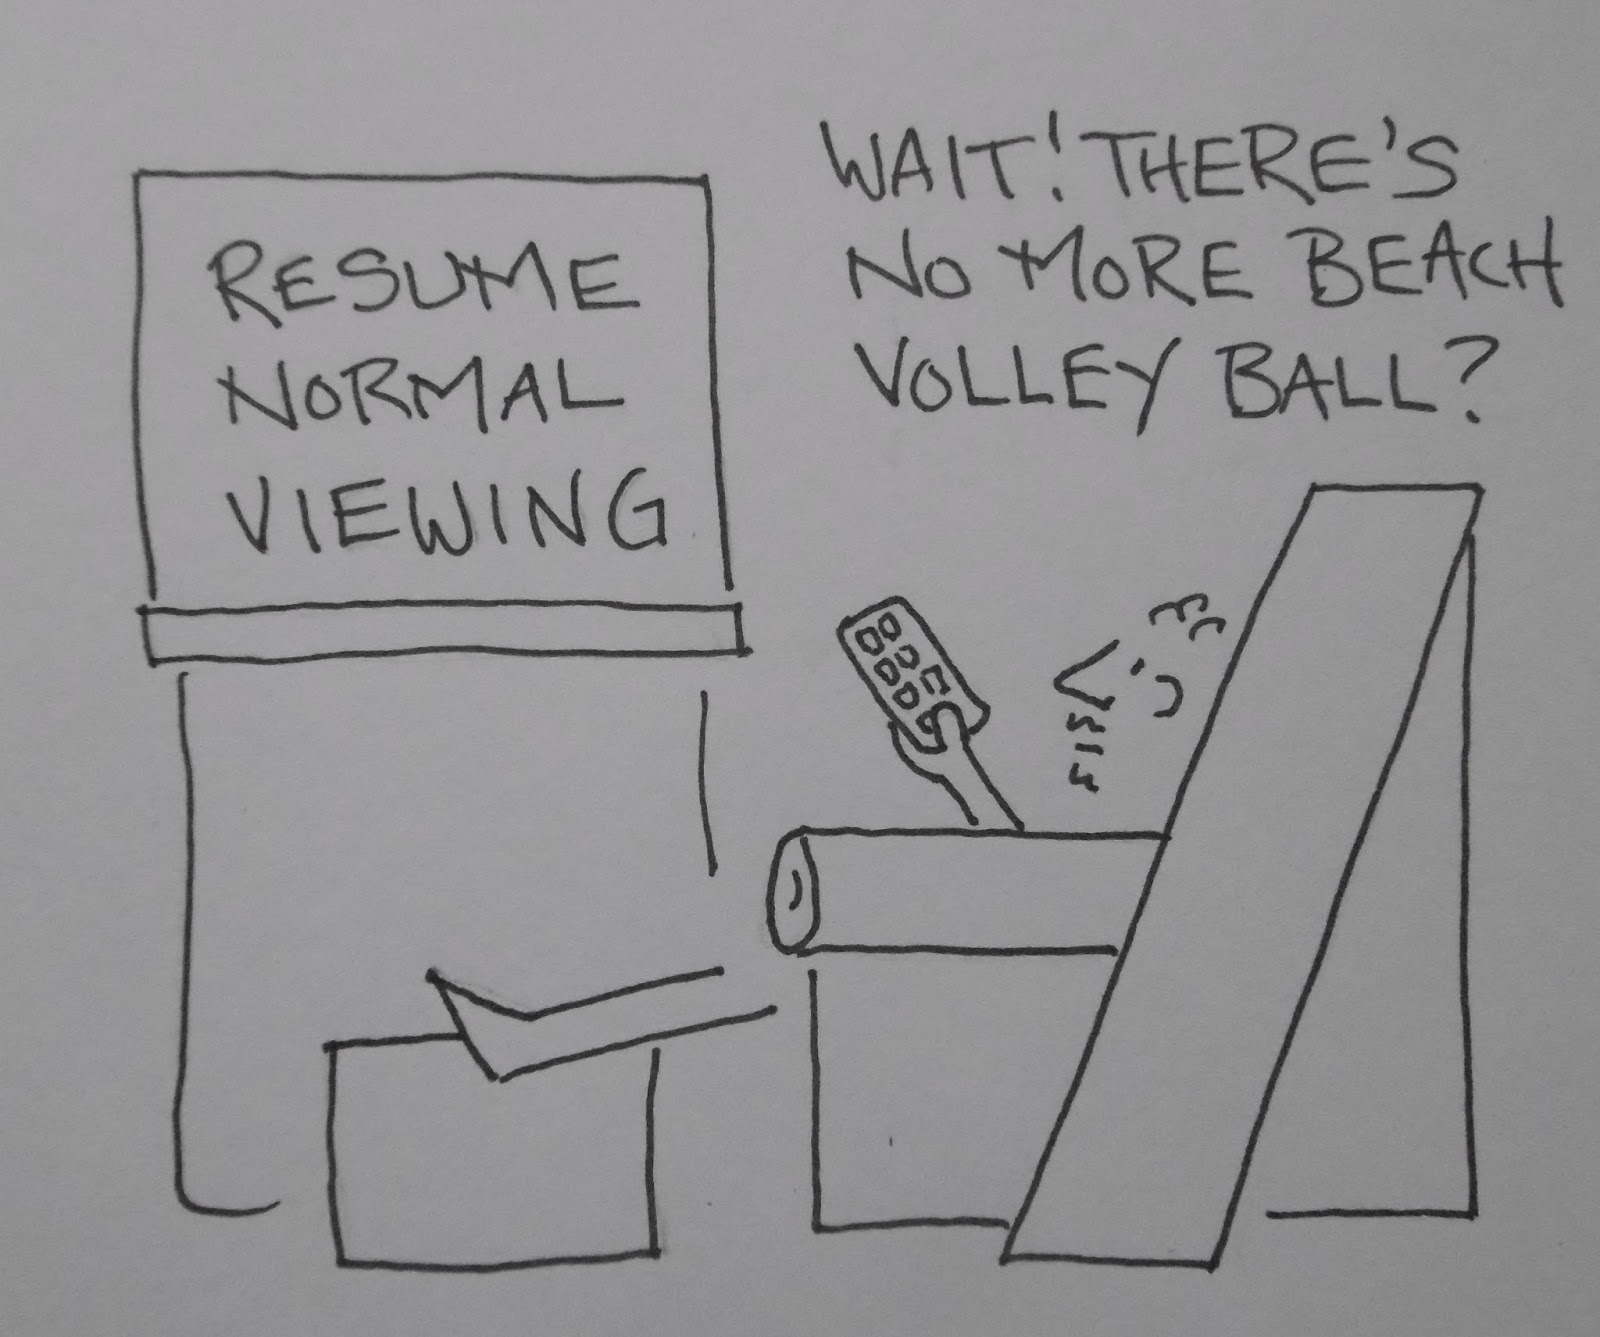 RESUME
NORMAL
VIEWING
WAIT! THERE'S
NO MORE BEACH
VOLLEY BALL?